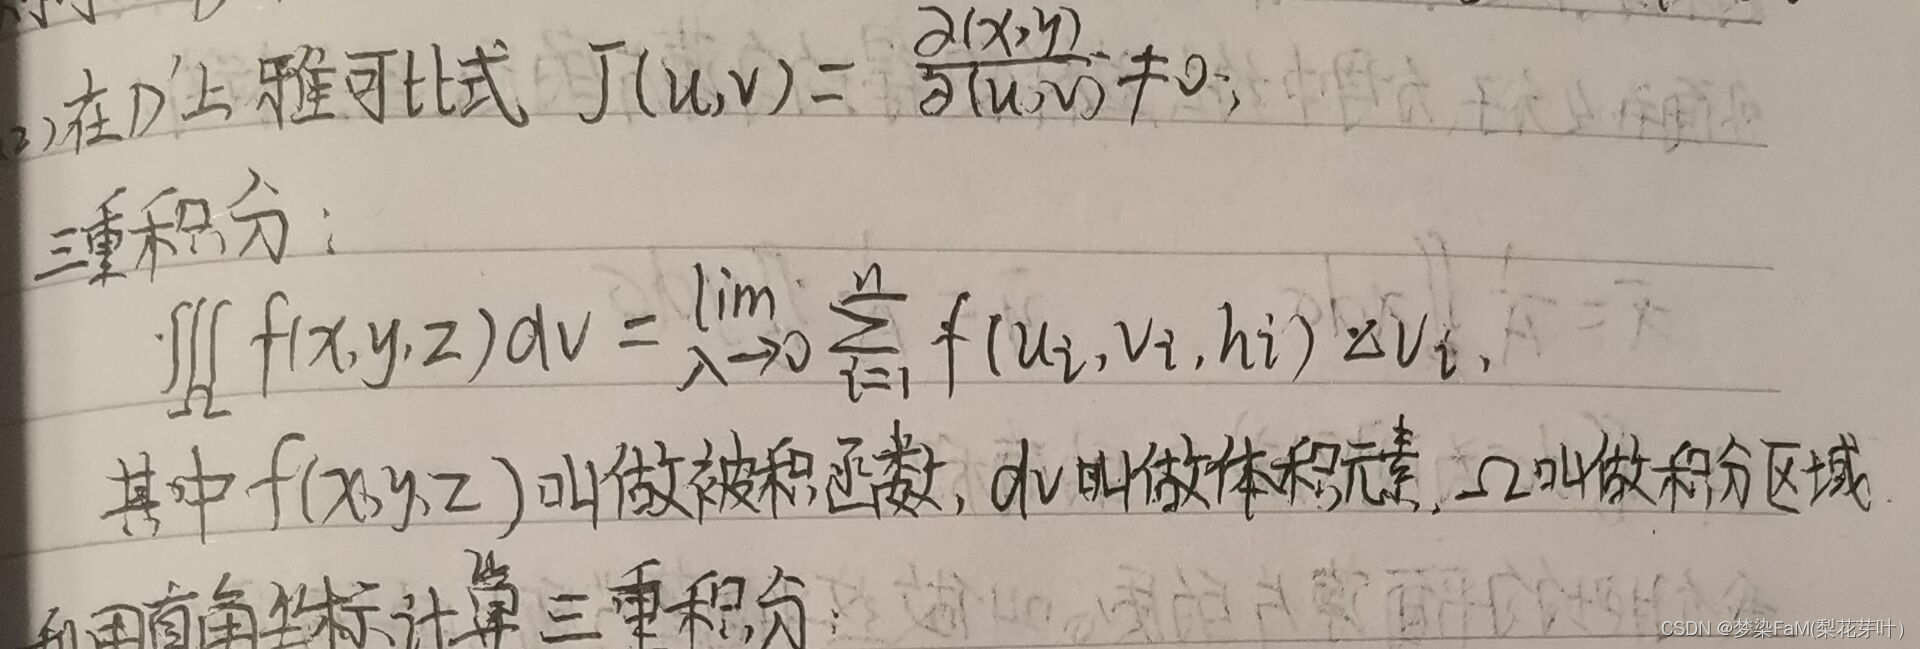 (2)在D'上雅可比式 J(u,v) = ∂(x,y)/∂(u,v) ≠0;
三重积分:
∭Ω f(x,y,z)dv = lim λ→0 ∑ i=1 n f(ui,vi,hi)△Vi,
其中f(x,y,z)叫做被积函数,dv叫做体积元素,Ω叫做积分区域
利用直角坐标计算三重积分:
CSDN @梦染FaM(梨花芽叶)